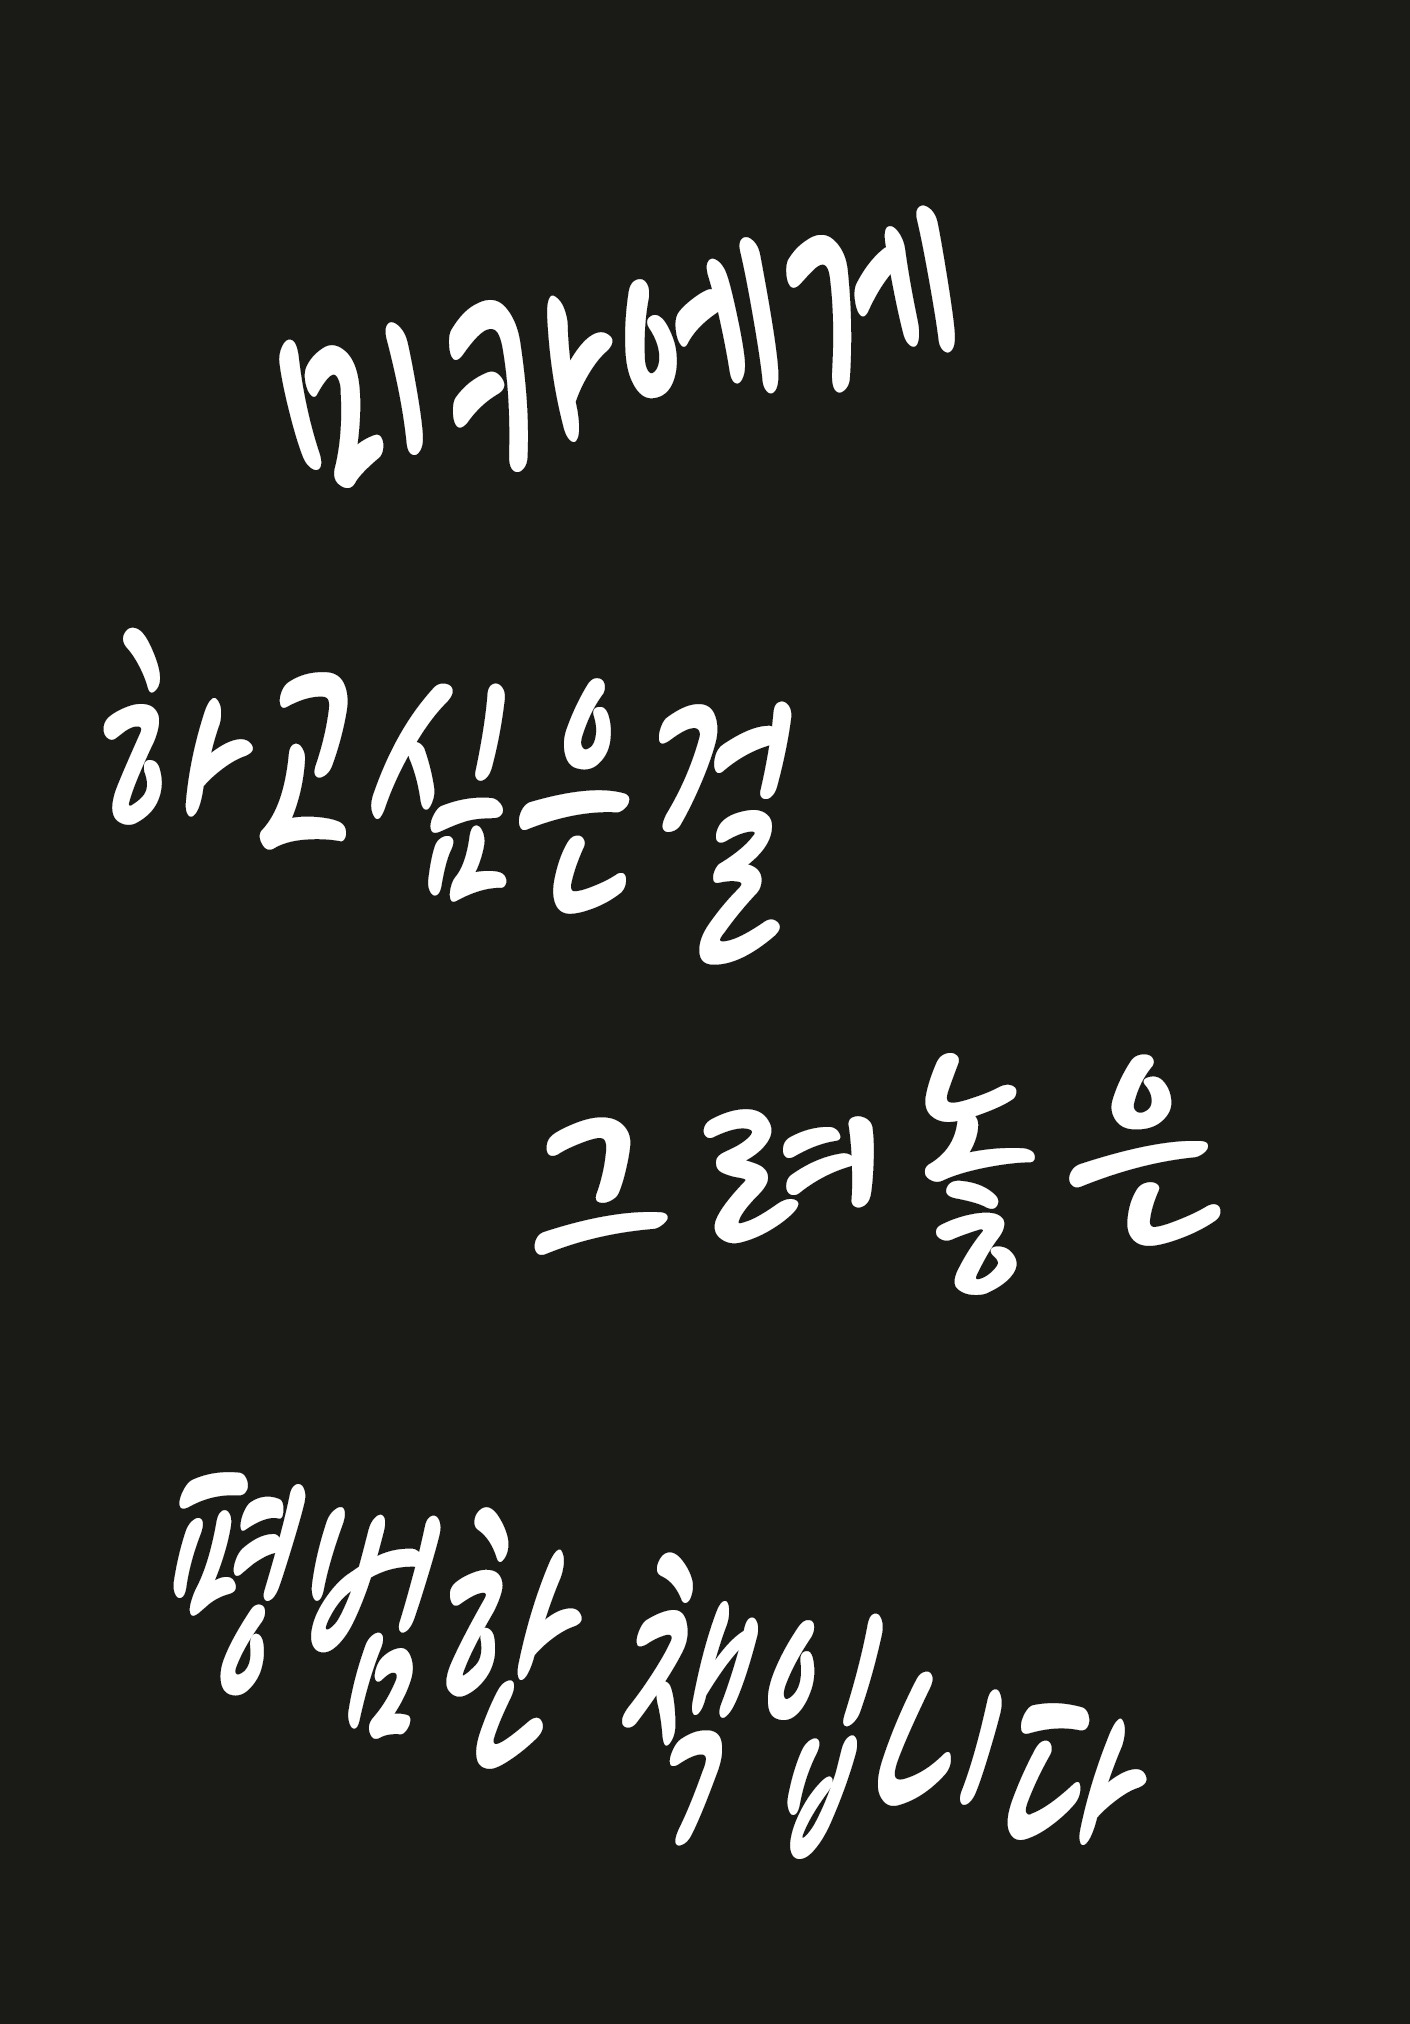 미카에게
하고싶은걸
그려놓은
평범한 책입니다